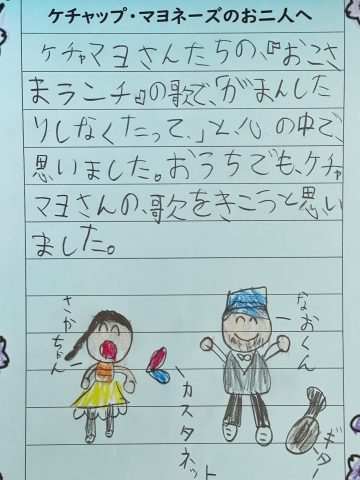 ケチャップ・マヨネーズのお二人へ
ケチャマヨさんたちの、『おこさ
まランチ』の歌で、「がまんした
りしなくたって、」と、心の中で、
思いました。おうちでも、ケチャ
マヨさんの、歌をきこうと思い
ました。
さかちゃん
なおくん
カスタネット
ギター